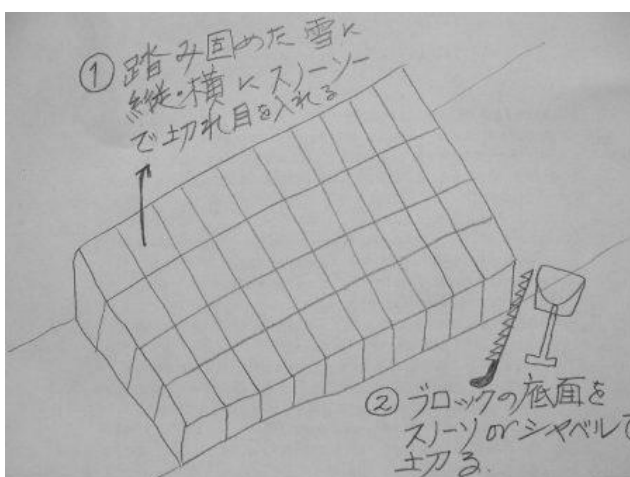 ① 踏み固めた雪に
縦・横にスノーソー
で切れ目を入れる
② ブロックの底面を
スノーソorシャベルで
切る.